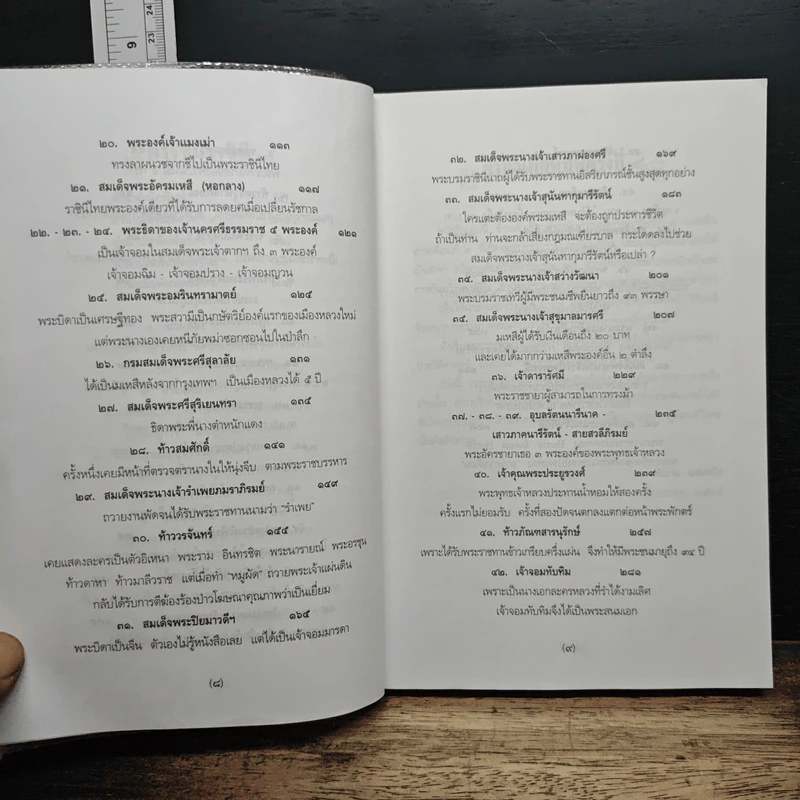 9
24
23
๒๐. พระองค์เจ้าแมงเม่า ๑๑๓
ทรงลาผนวชจากชีไปเป็นพระราชินีไทย
๒๑. สมเด็จพระอัครมเหสี (หอกลาง) ๑๑๗
ราชินีไทยพระองค์เดียวที่ได้รับการลดยศเมื่อเปลี่ยนรัชกาล
๒๒. - ๒๓. - ๒๔. พระธิดาของเจ้านครศรีธรรมราช ๕ พระองค์ ๑๒๑
เป็นเจ้าจอมในสมเด็จพระเจ้าตากฯ ถึง ๓ พระองค์
เจ้าจอมฉิม - เจ้าจอมปราง - เจ้าจอมญวน
๒๕. สมเด็จพระอมรินทรามาตย์ ๑๒๕
พระบิดาเป็นเศรษฐีทอง พระสวามีเป็นกษัตริย์องค์แรกของเมืองหลวงใหม่
แต่พระนางเองเคยหนีภัยพม่าซอกซอนไปในป่าลึก
๒๖. กรมสมเด็จพระศรีสุลาลัย ๑๓๑
ได้เป็นมเหสีหลังจากกรุงเทพฯ เป็นเมืองหลวงได้ ๕ ปี
๒๗. สมเด็จพระศรีสุริเยนทรา ๑๓๕
ธิดาพระพี่นางตำหนักแดง
๒๘. ท้าวสมศักดิ์ ๑๔๑
ครั้งหนึ่งเคยมีหน้าที่ตรวจตรานางในให้นุ่งจีบ ตามพระราชบรรหาร
๒๙. สมเด็จพระนางเจ้ารำเพยภมราภิรมย์ ๑๔๙
ถวายงานพัดจนได้รับพระราชทานนามว่า "รำเพย"
๓๐. ท้าววรจันทร์ ๑๕๕
เคยแสดงละครเป็นตัวอิเหนา พระราม อินทรชิต พระนารายณ์ พระอรชุน
ท้าวดาหา ท้าวมาลีวราช แต่เมื่อทำ "หมูผัด" ถวายพระเจ้าแผ่นดิน
กลับได้รับการตีฆ้องร้องป่าวโฆษณาคุณภาพว่าเป็นเยี่ยม
๓๑. สมเด็จพระปิยมาวดีฯ ๑๖๕
พระบิดาเป็นจีน ตัวเองไม่รู้หนังสือเลย แต่ได้เป็นเจ้าจอมมารดา
(๘)
๓๒. สมเด็จพระนางเจ้าเสาวภาผ่องศรี ๑๖๙
พระบรมราชินีนาถผู้ได้รับพระราชทานอิสริยาภรณ์ชั้นสูงสุดทุกอย่าง
๓๓. สมเด็จพระนางเจ้าสุนันทากุมารีรัตน์ ๑๘๓
ใครแตะต้ององค์พระมเหสี จะต้องถูกประหารชีวิต
ถ้าเป็นท่าน ท่านจะกล้าเสี่ยงกฎมณเฑียรบาล กระโดดลงไปช่วย
สมเด็จพระนางเจ้าสุนันทากุมารีรัตน์หรือเปล่า ?
๓๔. สมเด็จพระนางเจ้าสว่างวัฒนา ๒๐๑
พระบรมราชเทวีผู้มีพระชนมชีพยืนยาวถึง ๙๓ พรรษา
๓๕. สมเด็จพระนางเจ้าสุขุมาลมารศรี ๒๐๗
มเหสีผู้ได้รับเงินเดือนถึง ๒๐ บาท
และเคยได้มากกว่ามเหสีพระองค์อื่น ๒ ตำลึง
๓๖. เจ้าดารารัศมี ๒๒๙
พระราชชายาผู้สามารถในการทรงม้า
๓๗. - ๓๘. - ๓๙. อุบลรัตนนารีนาค - ๒๓๕
เสาวภาคนารีรัตน์ - สายสวลีภิรมย์
พระอัครชายาเธอ ๓ พระองค์ของพระพุทธเจ้าหลวง
๔๐. เจ้าคุณพระประยูรวงศ์ ๒๓๙
พระพุทธเจ้าหลวงประทานน้ำหอมให้สองครั้ง
ครั้งแรกไม่ยอมรับ ครั้งที่สองปัดจนตกลงแตกต่อหน้าพระพักตร์
๔๑. ท้าวภัณฑสารนุรักษ์ ๒๕๗
เพราะได้รับพระราชทานข้าวเกรียบครึ่งแผ่น จึงทำให้มีพระชนมายุถึง ๙๔ ปี
๔๒. เจ้าจอมทับทิม ๒๘๑
เพราะเป็นนางเอกละครหลวงที่รำได้งามเลิศ
เจ้าจอมทับทิมจึงได้เป็นพระสนมเอก
(๙)